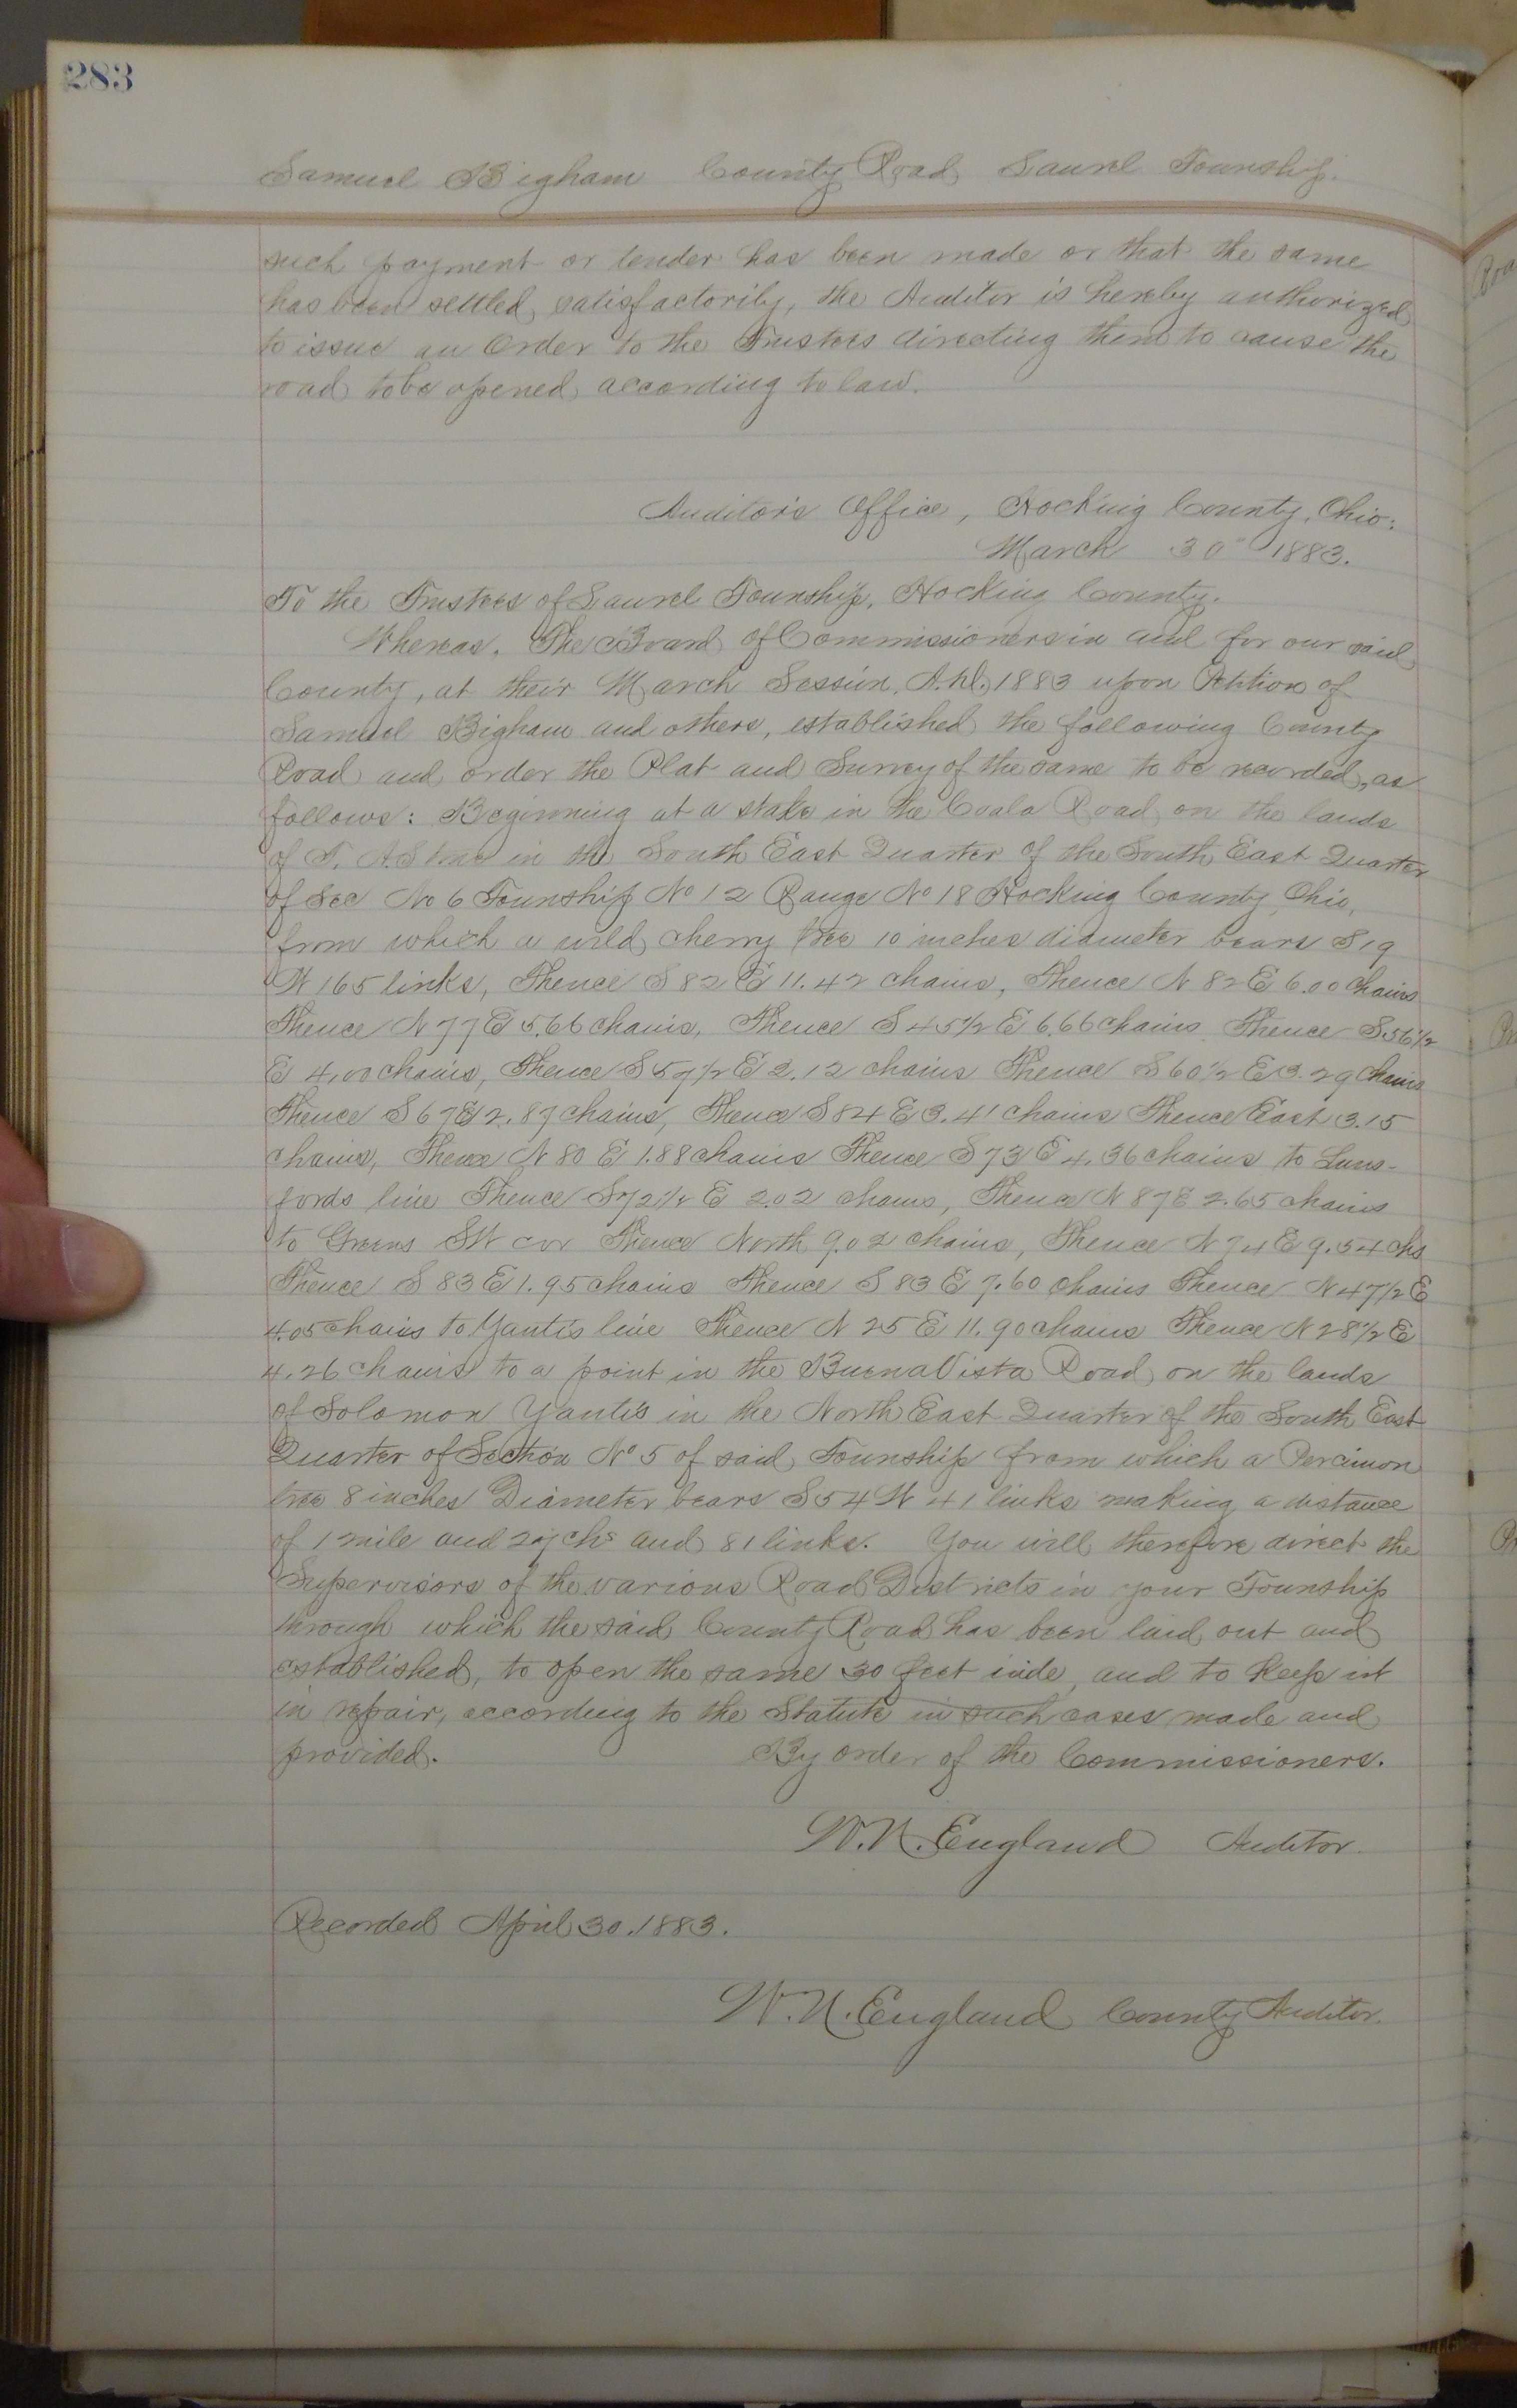 283
Samuel Bigham County Road Laurel Township.
such payment or tender has been made or that the same
has been settled satisfactorily, the Auditor is hereby authorized
to issue an Order to the Trustees directing them to cause the
road to be opened according to law.
Auditor's Office, Hocking County, Ohio.
March 30" 1883.
To the Trustees of Laurel Township, Hocking County.
Whereas, The Board of Commissioners in and for our said
County, at their March Session, A.D. 1883 upon Petition of
Samuel Bigham and others, established the following County
Road and order the Plat and Survey of the same to be recorded, as
follows: Beginning at a stake in the Road on the lands
of in the South East Quarter of the South East Quarter
of Sec No 6 Township No 12 Range No 18 Hocking County, Ohio,
from which a wild cherry tree 10 inches diameter bears S 19
W 165 links, Thence S 82 E 11.42 chains, Thence N 82 E 6.00 chains
Thence N 77 E 5.66 chains, Thence S 45 1/2 E 6.66 chains Thence S. 56 1/2
E 4.00 chains, Thence S 57 1/2 E 2.12 chains Thence S 60 1/2 E 3.29 chains
Thence S 67 E 2.87 chains, Thence S 84 E 3.41 chains Thence East 3.15
chains, Thence N 80 E 1.88 chains Thence S 73 E 4.36 chains to Luns-
fords line Thence S 72 1/2 E 2.02 chains, Thence N 87 E 2.65 chains
to Greens SW cor Thence North 9.02 chains, Thence N 74 E 9.54 chs
Thence S 83 E 1.95 chains Thence S 83 E 7.60 chains Thence N 47 1/2 E
4.05 chains to Yantis line Thence N 25 E 11.90 chains Thence N 28 1/2 E
4.26 chains to a point in the Buena Vista Road on the lands
of Solomon Yantis in the North East Quarter of the South East
Quarter of Section No 5 of said Township from which a Percimon
tree 8 inches Diameter bears S 54 W 41 links making a distance
of 1 mile and 27 chs and 81 links. You will therefore direct the
Supervisors of the various Road Districts in your Township
through which the said County Road has been laid out and
established, to open the same 30 feet wide, and to keep it
in repair, according to the Statute in such cases made and
provided. By order of the Commissioners.
W. N. England Auditor.
Recorded April 30. 1883.
W. N. England County Auditor.